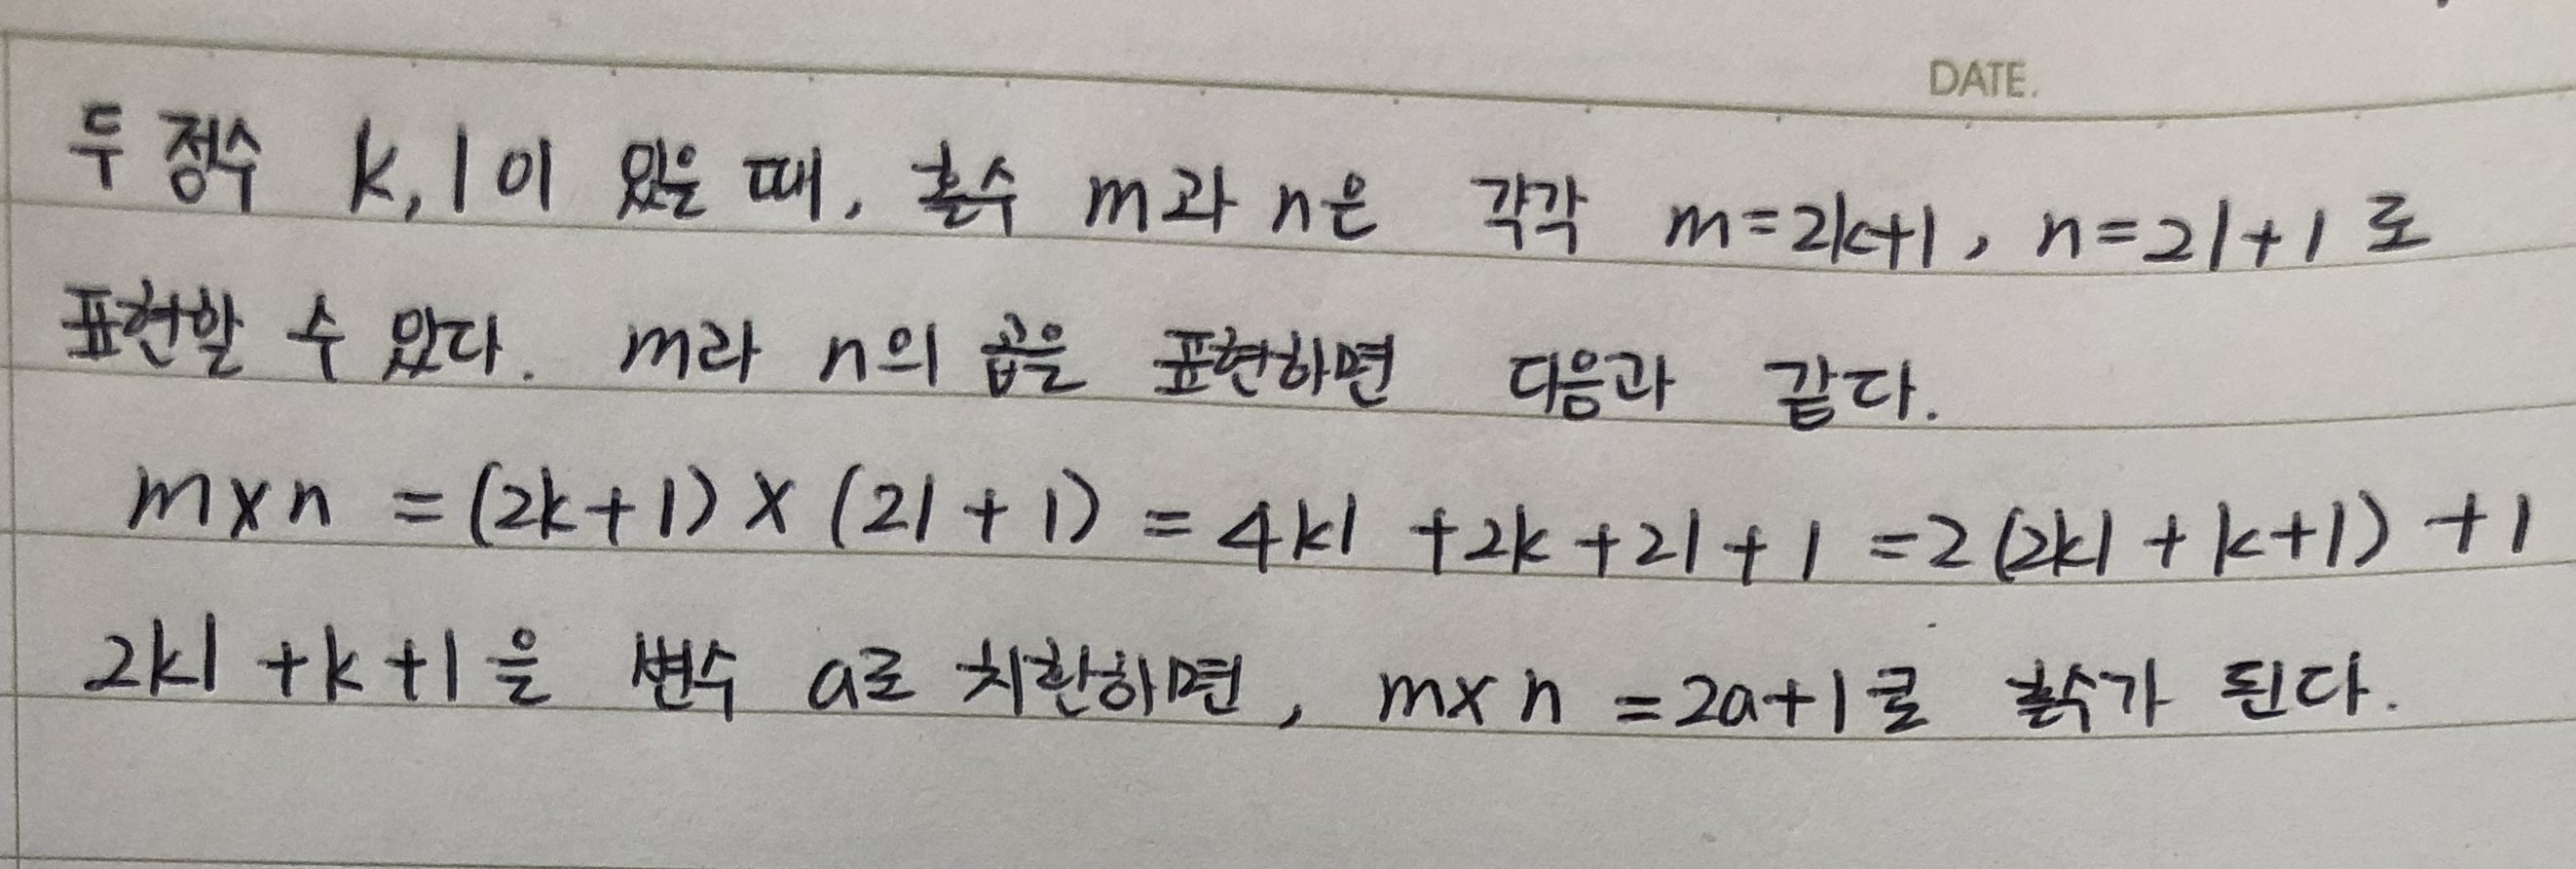 DATE.
두 정수 k, l이 있을 때, 홀수 m과 n은 각각 m=2k+1, n=2l+1로
표현할 수 있다. m과 n의 곱을 표현하면 다음과 같다.
m×n = (2k+1)×(2l+1) = 4kl+2k+2l+1 = 2(2kl+k+l)+1
2kl+k+l을 변수 a로 치환하면, m×n = 2a+1로 홀수가 된다.